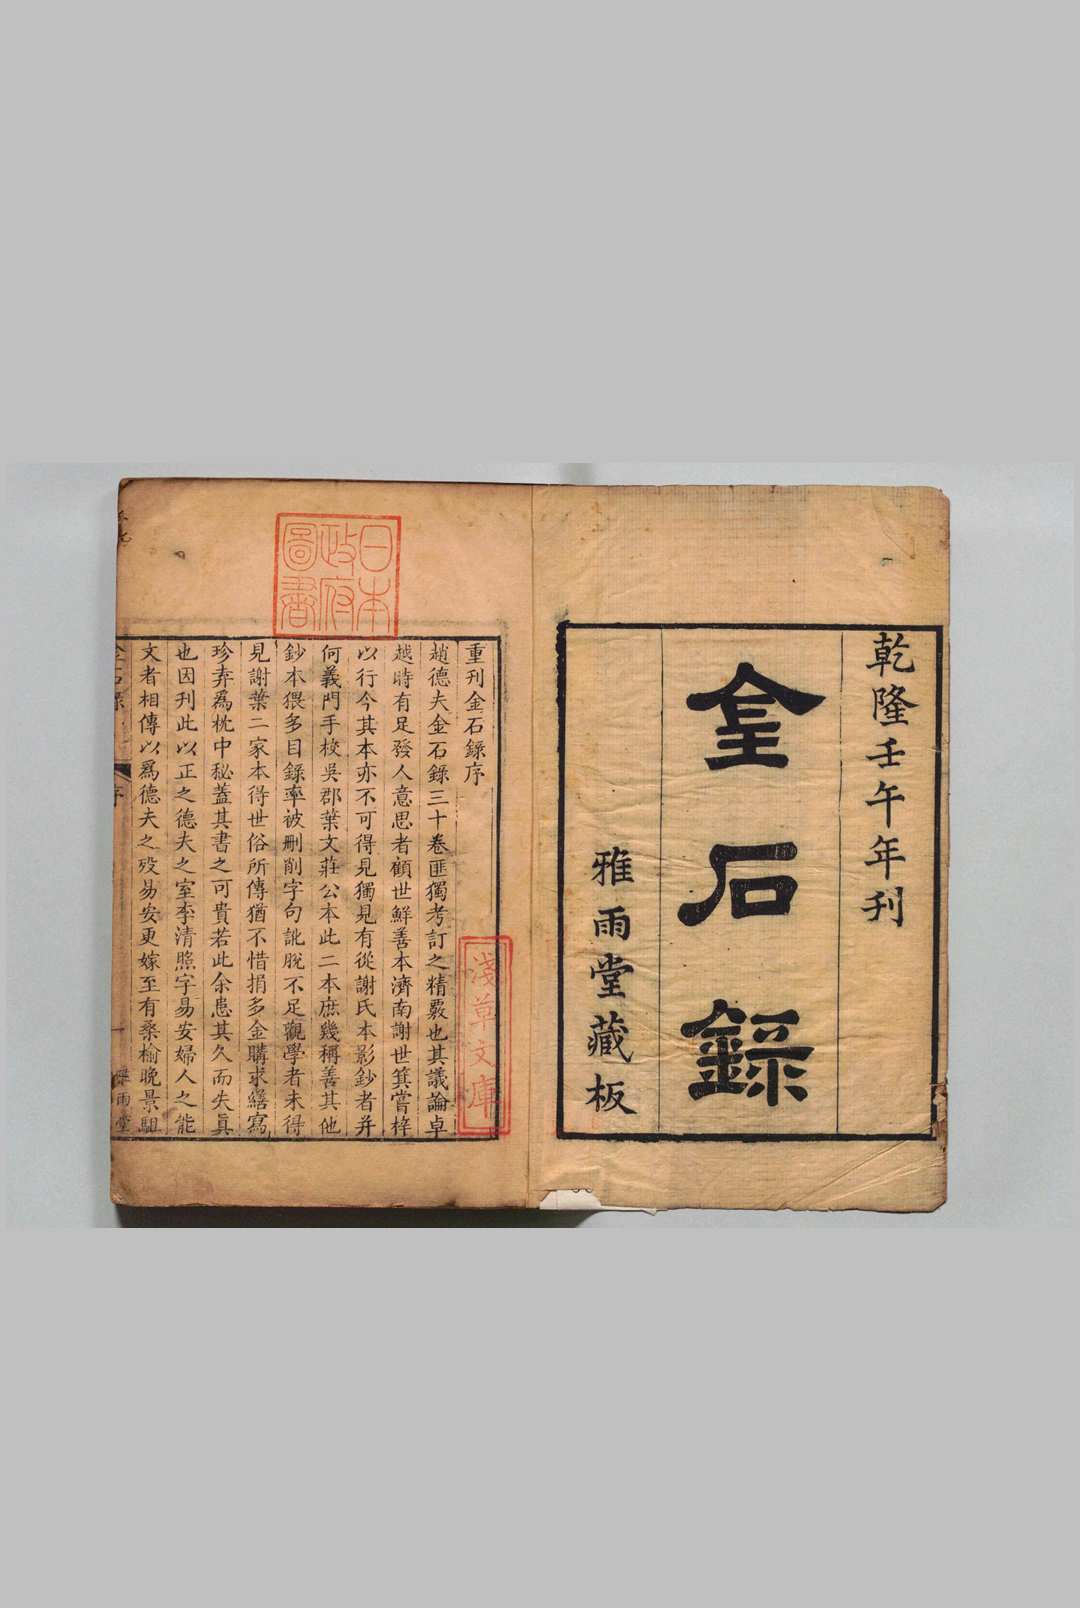 乾隆壬午年刊
金石錄
雅雨堂藏板
日本
政府
圖書
重刊金石錄序
趙德夫金石錄三十卷匪獨考訂之精覈也其議論卓
越時有足發人意思者顧世鮮善本濟南謝世箕嘗梓
以行今其本亦不可得見獨見有從謝氏本影鈔者并
何義門手校吳郡葉文莊公本此二本庶幾稱善其他
鈔本猥多目錄率被刪削字句訛脫不足觀學者未得
見謝葉二家本得世俗所傳猶不惜捐多金購求繕寫
珍弆爲枕中秘蓋其書之可貴若此余患其久而失眞
也因刊此以正之德夫之室李清照字易安婦人之能
文者相傳以爲德夫之歿易安更嫁至有桑榆晚景駔
淺草文庫
金石錄
序
雅雨堂